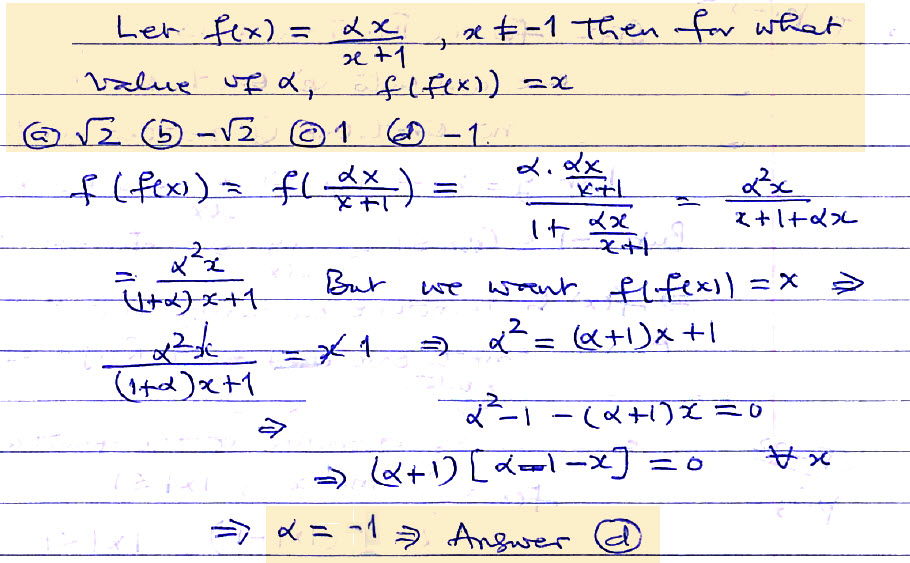 Let f(x) = αx/(x+1), x ≠ -1 Then for what
value of α, f(f(x)) = x
ⓐ √2 ⓑ -√2 ⓒ 1 ⓓ -1.
f(f(x)) = f(αx/(x+1)) = (α · αx/(x+1))/(1 + αx/(x+1)) = α²x/(x+1+αx)
= α²x/((1+α)x+1) But we want f(f(x)) = x ⇒
α²x/((1+α)x+1) = x 1 ⇒ α² = (α+1)x+1
⇒ α²-1-(α+1)x = 0
⇒ (α+1)[α-1-x] = 0 ∀ x
⇒ α = -1 ⇒ Answer ⓓ